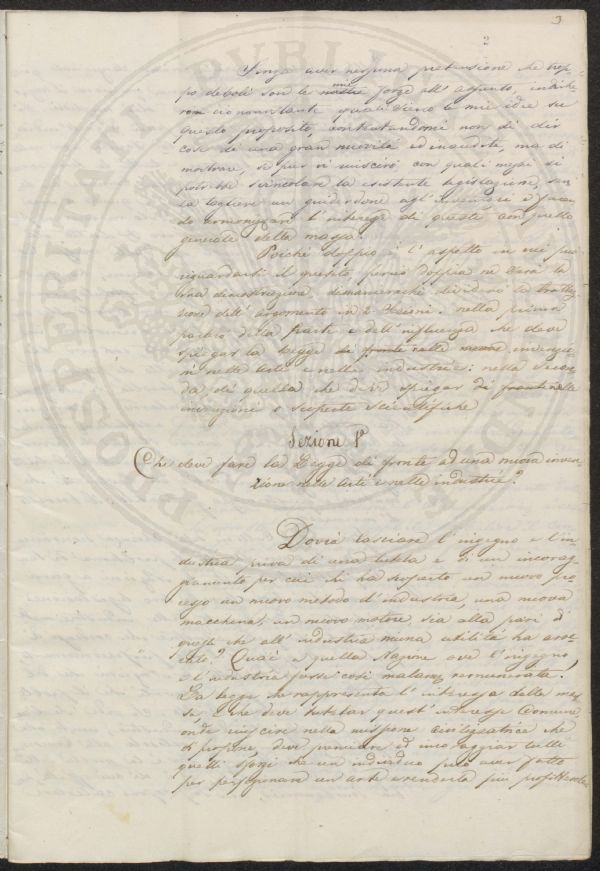 3
2
Senza aver nessuna pretensione che trop-
po deboli son le mie forze all'assunto, indiche-
rom ciononnostante quali sieno le mie idee su
questo proposito, contentandomi non di dir
cose di una gran novità ed inaudite, ma di
mostrare, se pur vi riuscirò con quali mezzi si
potrebbe la esistente legislazione, sen-
za togliere un guiderdone agl'inventori e facen-
do armonizzare l'interesse di questi con quello
generale della massa.
Poiché doppio è l'aspetto in cui può
riguardarsi il quesito perciò doppia ne sarà la
mia dimostrazione dimanieraché dividerò la tratta-
zione dell'argomento in 2 Sezioni: nella prima
parlerò della parte e dell'influenza che deve
spiegar la Legge di fronte alle nuove invenzio-
ni nelle arti e nelle industrie: nella secon-
da di quella che deve spiegar di fronte alle
invenzioni o scoperte scientifiche
Sezione 1ª
Che deve fare la Legge di fronte ad una nuova inven-
zione nelle arti e nelle industrie?
Dovrà lasciare l'ingegno e l'in-
dustria priva di una tutela e di un incorag-
giamento per cui chi ha scoperto un nuovo pro-
cesso un nuovo metodo d'industria, una nuova
macchina, un nuovo motore, sia alla pari di
quegli che all'industria niuna utilità ha arre-
cato? Guai a quella Nazione ove l'ingegno
e l'industria fosse così malam. remunerata!
La legge che rappresenta l'interesse della mas-
sa e che deve tutelar quest'interesse comune,
onde riuscire nella missione civilizzatrice che
si propone, deve premiare ed incoraggiar tutti
quelli sforzi che un individuo può aver fatto
per perfezionare un arte e renderla più profittevole